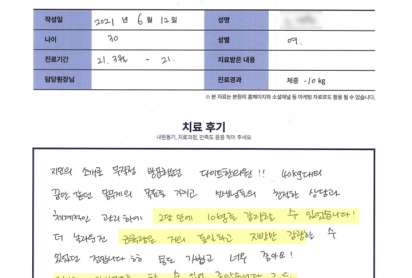 작성일 2021 년 6 월 12 일 성명
나이 30 성별 어.
진료기간 21. 3월 - 21. 치료받은 내용
담당원장님 진료경과 체중 -10kg
※ 본 자료는 본원의 홈페이지와 소셜채널 등 마케팅 자료로도 활용 될 수 있습니다.
치료 후기
내원동기, 치료과정, 만족도 등을 적어 주세요
지인의 소개로 무작정 방문했던 다이트한의원 !! 40kg대의
꿈만 같던 몸무게의 목표를 가지고 선생님들의 친절한 상담과
체계적인 관리하에 2달만에 10kg을 감량할 수 있었습니다!
더 놀라운건 근육량은 거의 동일하고 지방만 감량할 수
있었던 점입니다